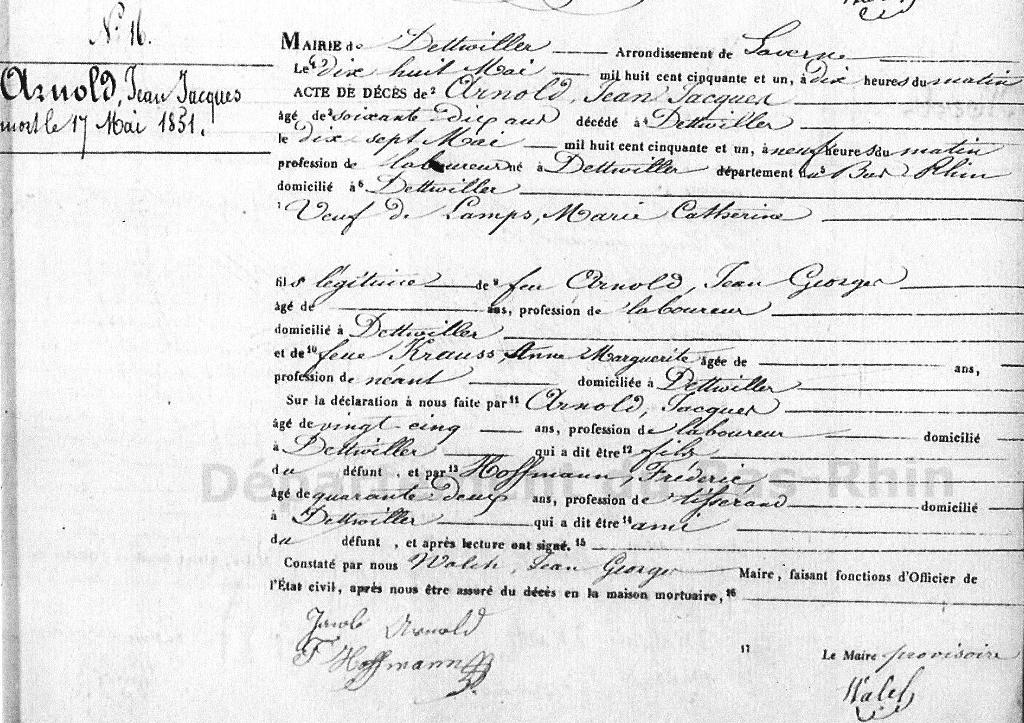 N.° 16.
Arnold, Jean Jacques
mort le 17 Mai 1851.
MAIRIE de Dettwiller Arrondissement de Saverne
Le dix huit Mai mil huit cent cinquante et un, à dix heures du matin
ACTE DE DÉCÈS de ² Arnold, Jean Jacques
âgé de ³ soixante-dix ans décédé à ⁴ Dettwiller
le dix sept Mai mil huit cent cinquante et un, à neuf heures du matin
profession de laboureur né à Dettwiller département du ⁵ Bas Rhin
domicilié à ⁶ Dettwiller
Veuf de Lamps, Marie Catherine
fils légitime de ⁹ feu Arnold, Jean George
âgé de ans, profession de laboureur
domicilié à Dettwiller
et de ¹⁰ feue Krauss, Anne Marguerite âgée de ans,
profession de néant domiciliée à Dettwiller
Sur la déclaration à nous faite par ¹¹ Arnold, Jacques
âgé de vingt cinq ans, profession de laboureur domicilié
à Dettwiller qui a dit être ¹² fils
du défunt, et par ¹³ Hoffmann, Fréderic,
âgé de quarante-deux ans, profession de tisserand domicilié
à Dettwiller qui a dit être ¹⁴ ami
du défunt, et après lecture ont signé. ¹⁵
Constaté par nous Walch, Jean George Maire, faisant fonctions d'Officier de
l'État civil, après nous être assuré du décès en la maison mortuaire, ¹⁶
Jacob Arnold
F Hoffmann
¹⁷ Le Maire provisoire
Walch
Département du Bas-Rhin